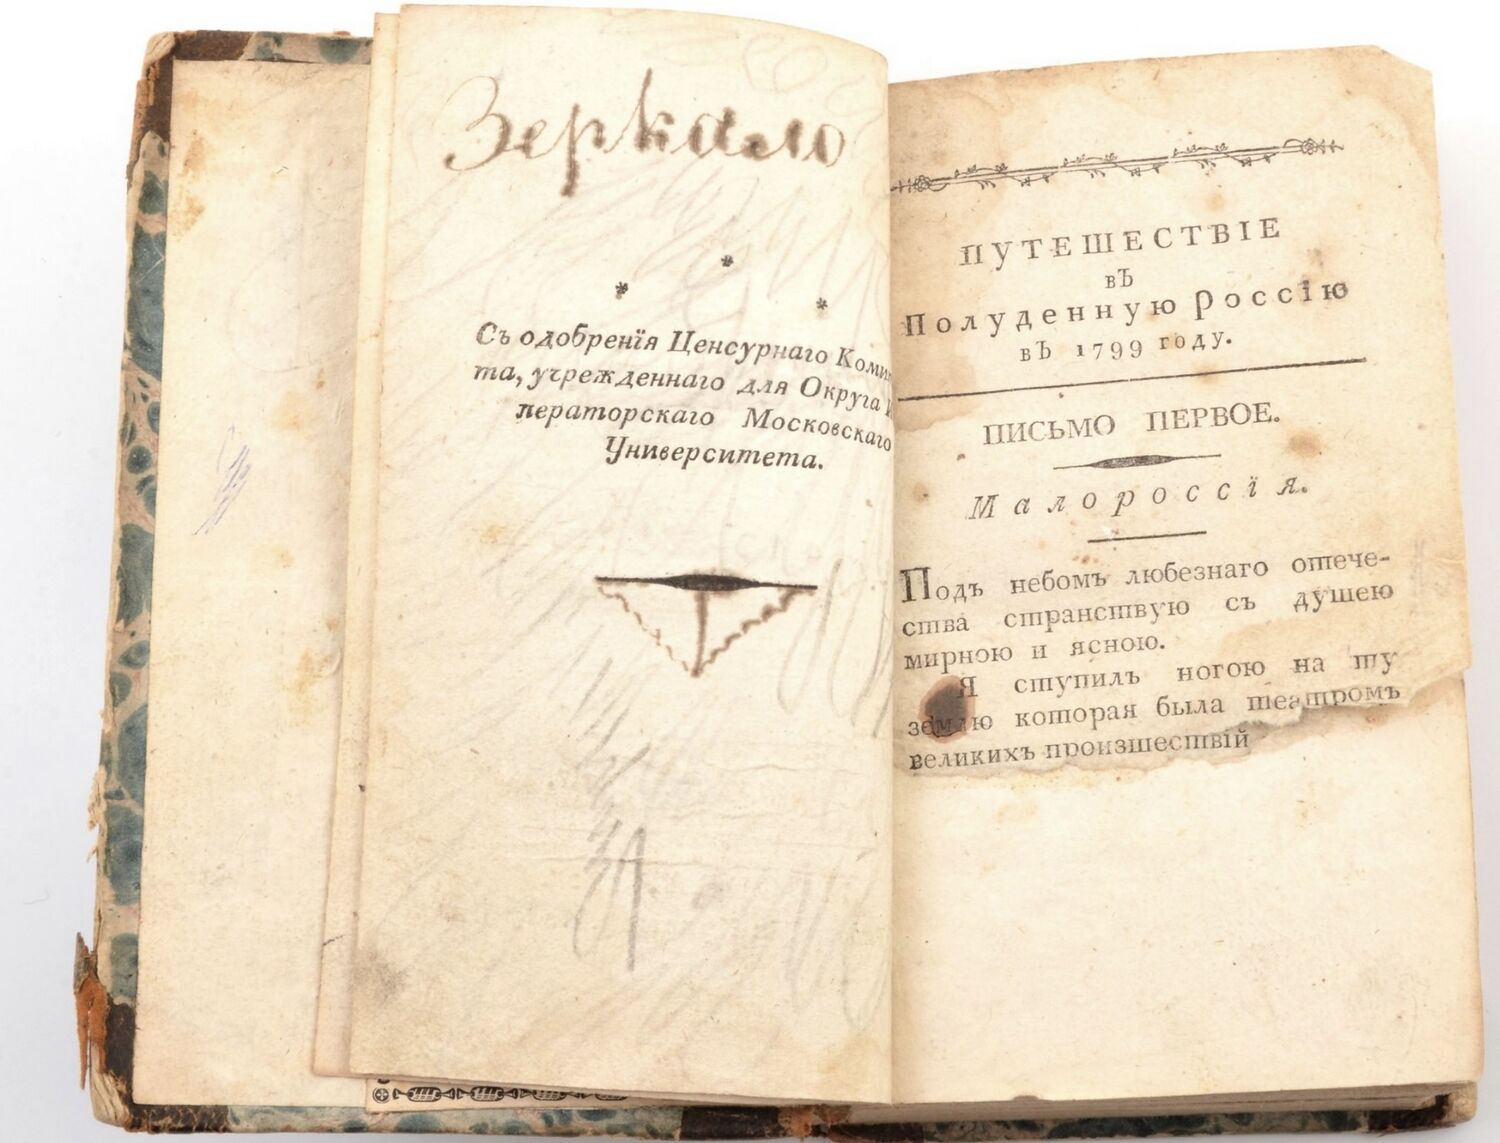 Зеркало
* * *
Съ одобренїя Ценсурнаго
та, учрежденнаго для Округа
ператорскаго Московскаго
Университета.
ПУТЕШЕСТВІЕ
въ
Полуденную Россїю
въ 1799 году.
ПИСЬМО ПЕРВОЕ.
Малороссїя.
Подъ небомъ любезнаго отече-
ства странствую съ душею
мирною и ясною.
Я ступилъ ногою на ту
землю которая была театромъ
великихъ произшествїй